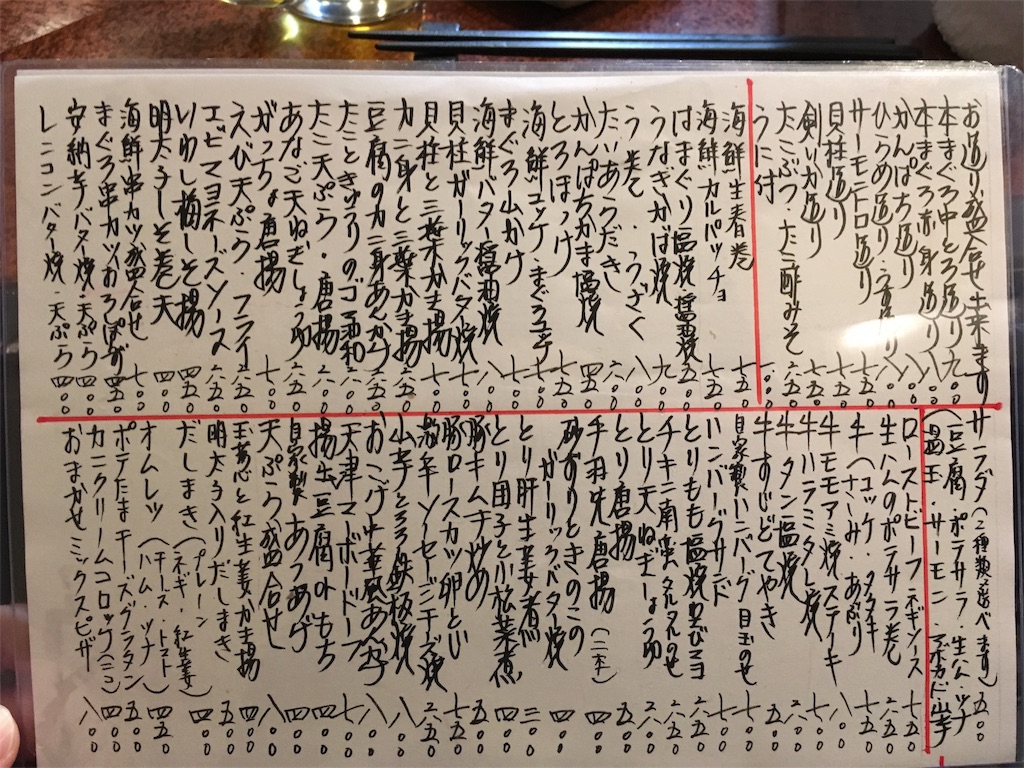 お造り盛合せ出来ます
本まぐろ中とろ造り 九〇〇
本まぐろ赤身造り 八〇〇
かんぱち造り 八〇〇
ひらめ造り・うす造り 八〇〇
サーモントロ造り 七五〇
貝柱造り 七五〇
剣いか造り 七五〇
たこぶつ・たこ酢みそ 六五〇
うに付
海鮮生春巻 七五〇
海鮮カルパッチョ 七五〇
はまぐり塩焼 醤油焼 五〇〇
うなぎかば焼 九〇〇
う巻・うざく 八〇〇
たいあらだき 六〇〇
かんぱちかま塩焼 四五〇
とろほっけ 七五〇
海鮮ユッケ・まぐろユッケ
まぐろ山かけ 八〇〇
海鮮バター醤油焼
貝柱ガーリックバター焼 七〇〇
貝柱と三つ葉かき揚 七〇〇
カニ身と三つ葉かき揚 六五〇
豆腐のカニ身あんかけ 六五〇
たこときゅうりのゴマ和
たこ天ぷら・唐揚 六〇〇
あなご天ねぎしょうゆ 六五〇
がっちょ唐揚
えび天ぷら・フライ 六五〇
エビマヨネーズソース 六五〇
いわし梅しそ揚 四五〇
明太子しそ巻天
海鮮串カツ盛合せ 七〇〇
まぐろ串カツおろしぽん 四五〇
安納芋バター焼・天ぷら 四〇〇
レンコンバター焼・天ぷら 四〇〇
サラダ(二種類選べます) 五〇〇
(豆腐・ポテサラ・生ハム・ツナ
温玉 サーモン・アボカド・山芋)
ローストビーフ・ネギソース 七五〇
生ハムのポテサラ巻 六五〇
牛ユッケ・タタキ
牛へさしみ・あぶり
牛モモアミ焼・ステーキ 八〇〇
牛ハラミタレ焼 七〇〇
牛タン塩焼
牛すじどてやき 五〇〇
自家製ハンバーグ目玉のせ 七〇〇
ハンバーグサンド 七〇〇
とりもも塩焼わさびマヨ 六五〇
チキン南蛮タルタルのせ 六五〇
とり天ねぎしょうゆ 六〇〇
とり唐揚 五〇〇
手羽先唐揚(二本) 四〇〇
砂ずりときのこの
ガーリックバター焼 四〇〇
とり肝生姜煮 三〇〇
とり団子と小松菜煮 四〇〇
豚キムチ炒め 五〇〇
豚ロースカツ卵とじ 七五〇
激辛ソーセージチーズ焼 六五〇
山芋とろろ鉄板焼 八〇〇
おこげ中華風あんかけ 八〇〇
天津マーボードーフ 七〇〇
揚出豆腐orもち 四〇〇
自家製あつあげ 四〇〇
天ぷら盛合せ 八〇〇
玉ねぎと紅生姜かき揚 四〇〇
明太子入りだしまき 五〇〇
だしまき(プレーン 四〇〇
ネギ・紅生姜)
オムレツ(チーズ・トマト 四五〇
ハム・ツナ)
ポテたまチーズグラタン 五〇〇
カニクリームコロッケ(二コ) 四〇〇
おまかせミックスピザ 八〇〇